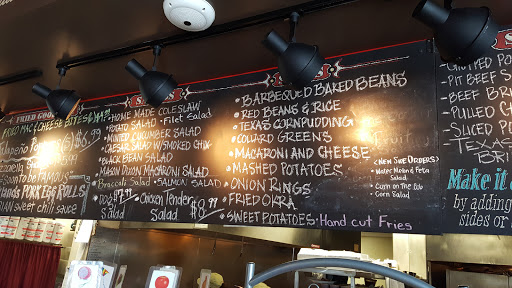 FRIED GOO
FRIED MAC & CHEESE BITES
$6.99
FAMOUS
PORK EGG ROLLS
sweet chili sauce
HOME MADE COLESLAW
POTATO SALAD • Filet Salad
MINTED CUCUMBER SALAD
CAESAR SALAD W/SMOKED CHIX
BLACK BEAN SALAD
MASON DIXON MACARONI SALAD
Broccoli Salad • SALMON SALAD
Salad
Chicken Tender
Salad
• BARBESQUED BAKED BEANS
• RED BEANS & RICE
• TEXAS CORNPUDDING
• COLLARD GREENS
• MACARONI AND CHEESE
• MASHED POTATOES
• ONION RINGS
• FRIED OKRA
• SWEET POTATOES • Hand cut Fries
<NEW SIDE ORDERS>
• Water Melon & Feta
Salad
• Corn on The Cob
• Corn Salad
- CHOPPED PO
- PIT BEEF S
- BEEF BR
- PULLED C
- SLICED PO
TEXAS
BRI
Make it a
by adding
sides or